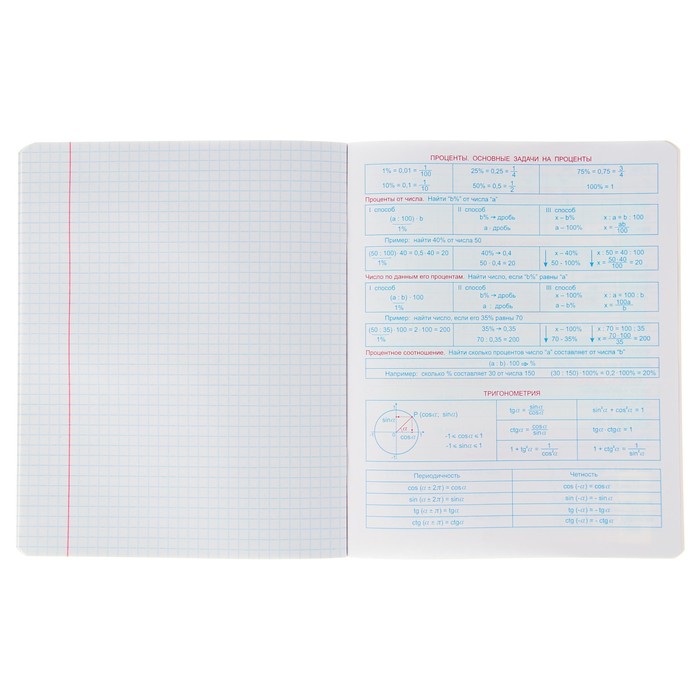 ПРОЦЕНТЫ. ОСНОВНЫЕ ЗАДАЧИ НА ПРОЦЕНТЫ
1% = 0,01 = 1/100 25% = 0,25 = 1/4 75% = 0,75 = 3/4
10% = 0,1 = 1/10 50% = 0,5 = 1/2 100% = 1
Проценты от числа. Найти "b%" от числа "a"
I способ II способ III способ
(a : 100) · b b% → дробь x – b% x : a = b : 100
1% a · дробь a – 100% x = ab/100
Пример: найти 40% от числа 50
(50 : 100)· 40 = 0,5 ·40 = 20 40% = 0,4 x – 40% x : 50 = 40 : 100
1% 50 · 0,4 = 20 50 - 100% x = 50·40/100 = 20
Число по данным его процентам. Найти число, если "b%" равны "a"
I способ II способ III способ
(a : b) · 100 b% → дробь x – 100% x : a = 100 : b
1% a : дробь a – b% x = 100a/b
Пример: найти число, если его 35% равны 70
(50 : 35)· 100 = 2 · 100 = 200 35% = 0,35 x – 100% x : 70 = 100 : 35
1% 70 : 0,35 = 200 70 - 35% x = 70·100/35 = 200
Процентное соотношение. Найти сколько процентов число "a" составляет от числа "b"
(a : b) · 100 ⇒ %
Например: сколько % составляет 30 от числа 150 (30 : 150)· 100% = 0,2 · 100% = 20%
ТРИГОНОМЕТРИЯ
P (cosα; sinα)
sinα
α
cosα
-1 ≤ cosα ≤ 1
-1 ≤ sinα ≤ 1
tgα = sinα/cosα sin²α + cos²α = 1
ctgα = cosα/sinα tgα · ctgα = 1
1 + tg²α = 1/cos²α 1 + ctg²α = 1/sin²α
Периодичность Четность
cos (α ± 2π) = cosα cos (-α) = cosα
sin (α ± 2π) = sinα sin (-α) = - sinα
tg (α ± π) = tgα tg (-α) = - tgα
ctg (α ± π) = ctgα ctg (-α) = - ctgα